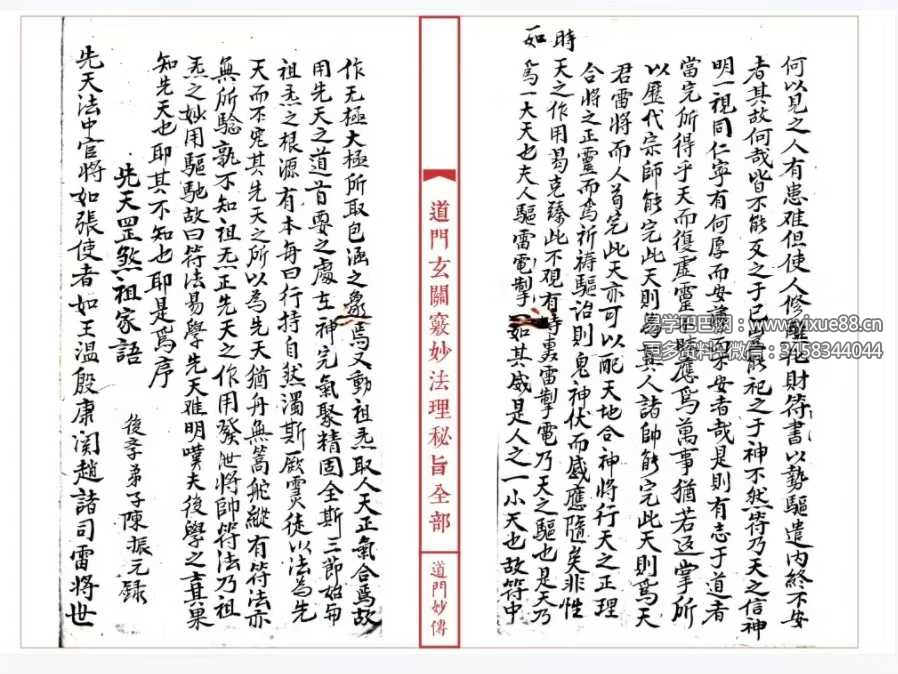 何以見之人有患难但使人修醮化財符書以势驅遣内終不安
者其故何哉皆不能反之于己當能祀之于神不然符乃天之信神
明一視同仁寧有何厚而安薄而不安者哉是則有志于道者
當完所得乎天而復虚靈且驗應為萬事猶若返掌所
以歷代宗師能完此天則為其人諸帥能完此天則為天
君雷將而人苟完此天亦可以配天地合神將行天之正理
合將之正靈而為祈禱驅治則鬼神伏而感應隨矣非性
天之作用曷克臻此不覌有時
時
如
裏雷掣電乃天之驅也是天乃
為一大天也夫人驅雷電掣
如其威是人之一小天也故符中
道門玄關竅妙法理秘旨全部
道門妙傳
作无極大極所取包涵之象焉又動祖炁取人天正氣合焉故
用先天之道首要之處在神完氣聚精固全斯三節始可
祖炁之根源有本每曰行持自然濁斯厥灵徒以法為先
天而不究其先天之所以為先天猶舟無篙舵縱有符法亦
無所驗孰不知祖炁正先天之作用發泄將帥符法乃祖
炁之妙用驅馳故曰符法易學先天难明嘆夫後學之真果
知先天也耶其不知也耶是為序
先天罡煞祖家語
後孝弟子陳振元録
先天法中官將如張使者如王温殷康関趙諸司雷將世
易学巴巴网：www.yixue88.cn
更多资料加微信：3458344044